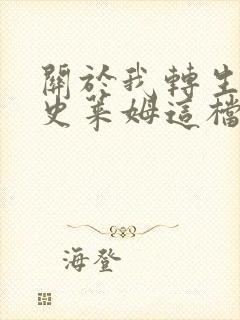 關於我轉生
史萊姆這檔
海登